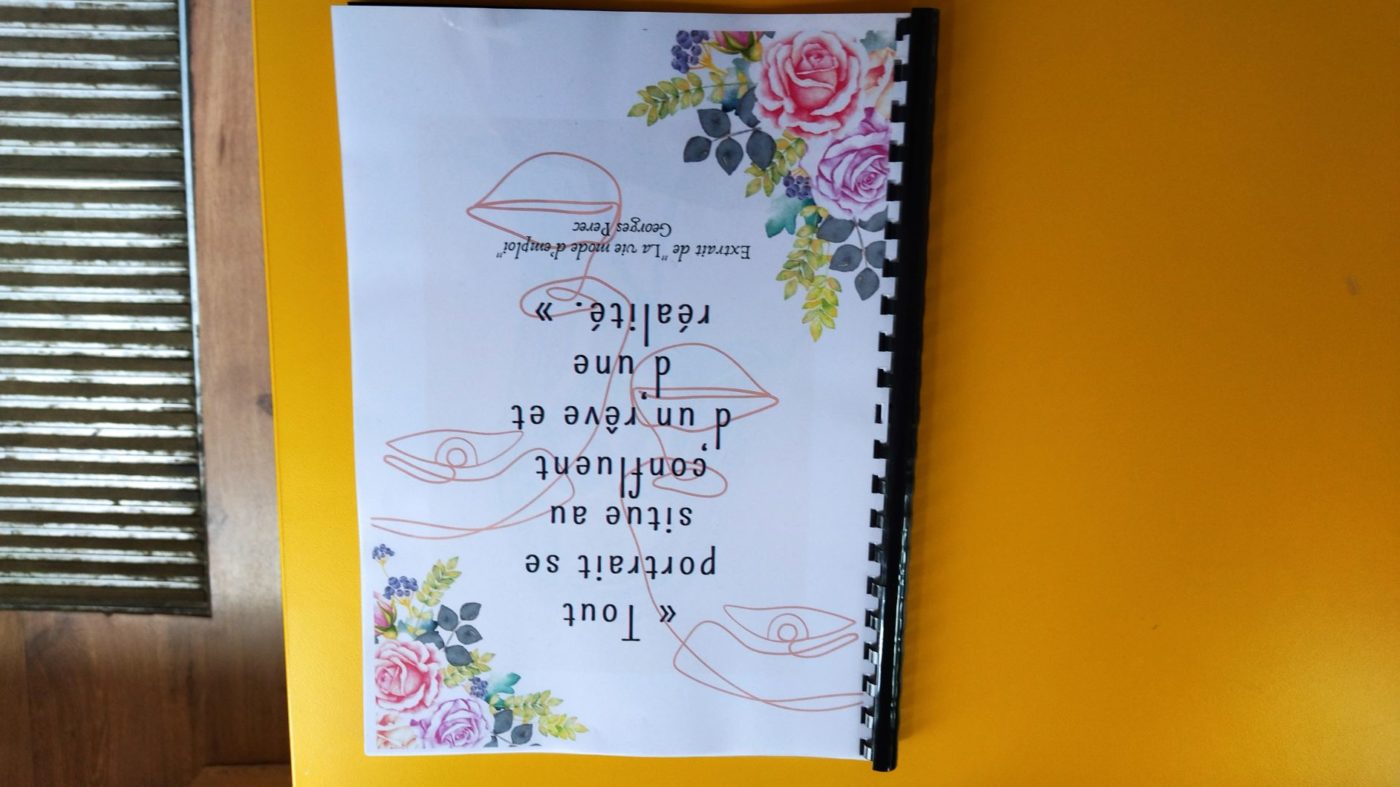 « Tout
portrait se
situe au
confluent
d'un rêve et
d'une
réalité. »
Extrait de "La vie mode d'emploi"
Georges Perec